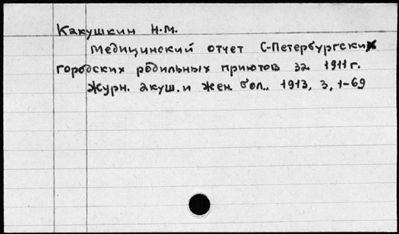 Какушкин Н.М.
Медицинский отчет С-Петербургских
городских родильных приютов за 1911 г.
Журн. акуш. и жен. бол., 1913, 3, 1-69